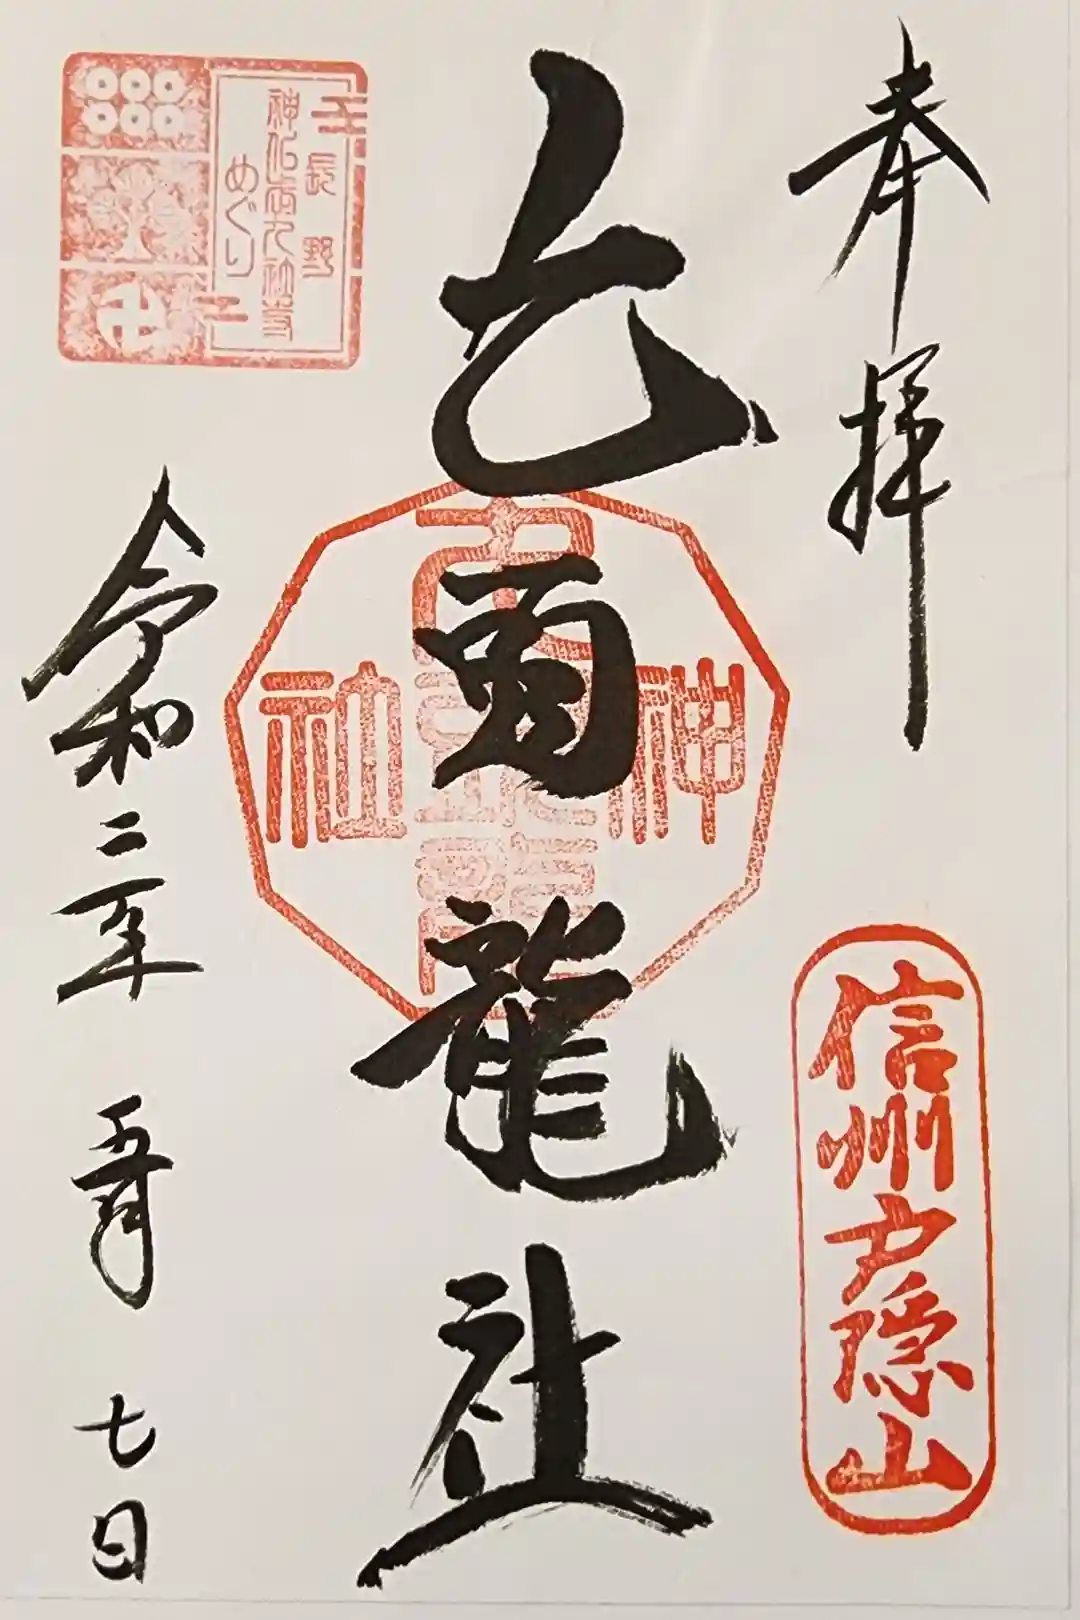 奉拝
信州戸隠山
九頭龍社
神
社
長野
神仏古九社寺
めぐり
令和二年
七日